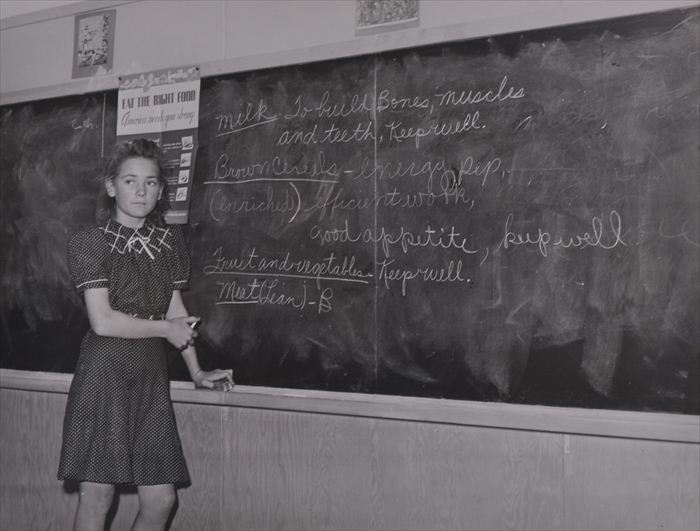 EAT THE RIGHT FOOD
America needs you strong
Milk To build Bones, muscles
and teeth, Keep well.
Brown Cereals - energy, pep,
(enriched) efficient work,
good appetite, keep well
Fruit and vegetables - Keep well.
Meat (Lean) - B